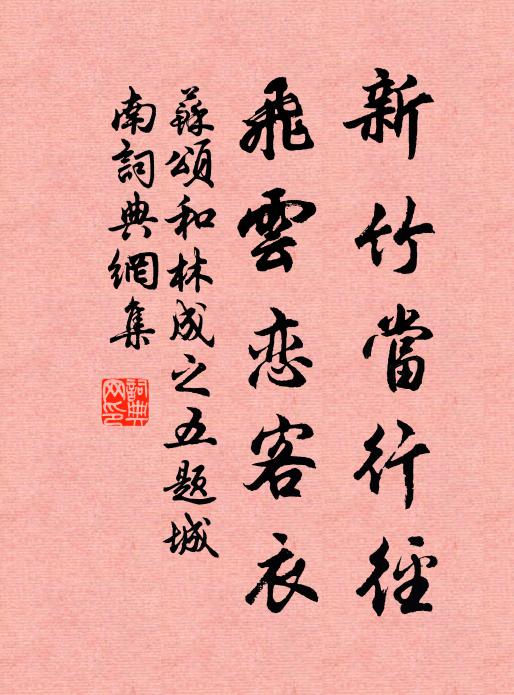 新竹當行徑
飛雲恋客衣
蘇頌和林成之五题城
南詞典網集
詞典网印